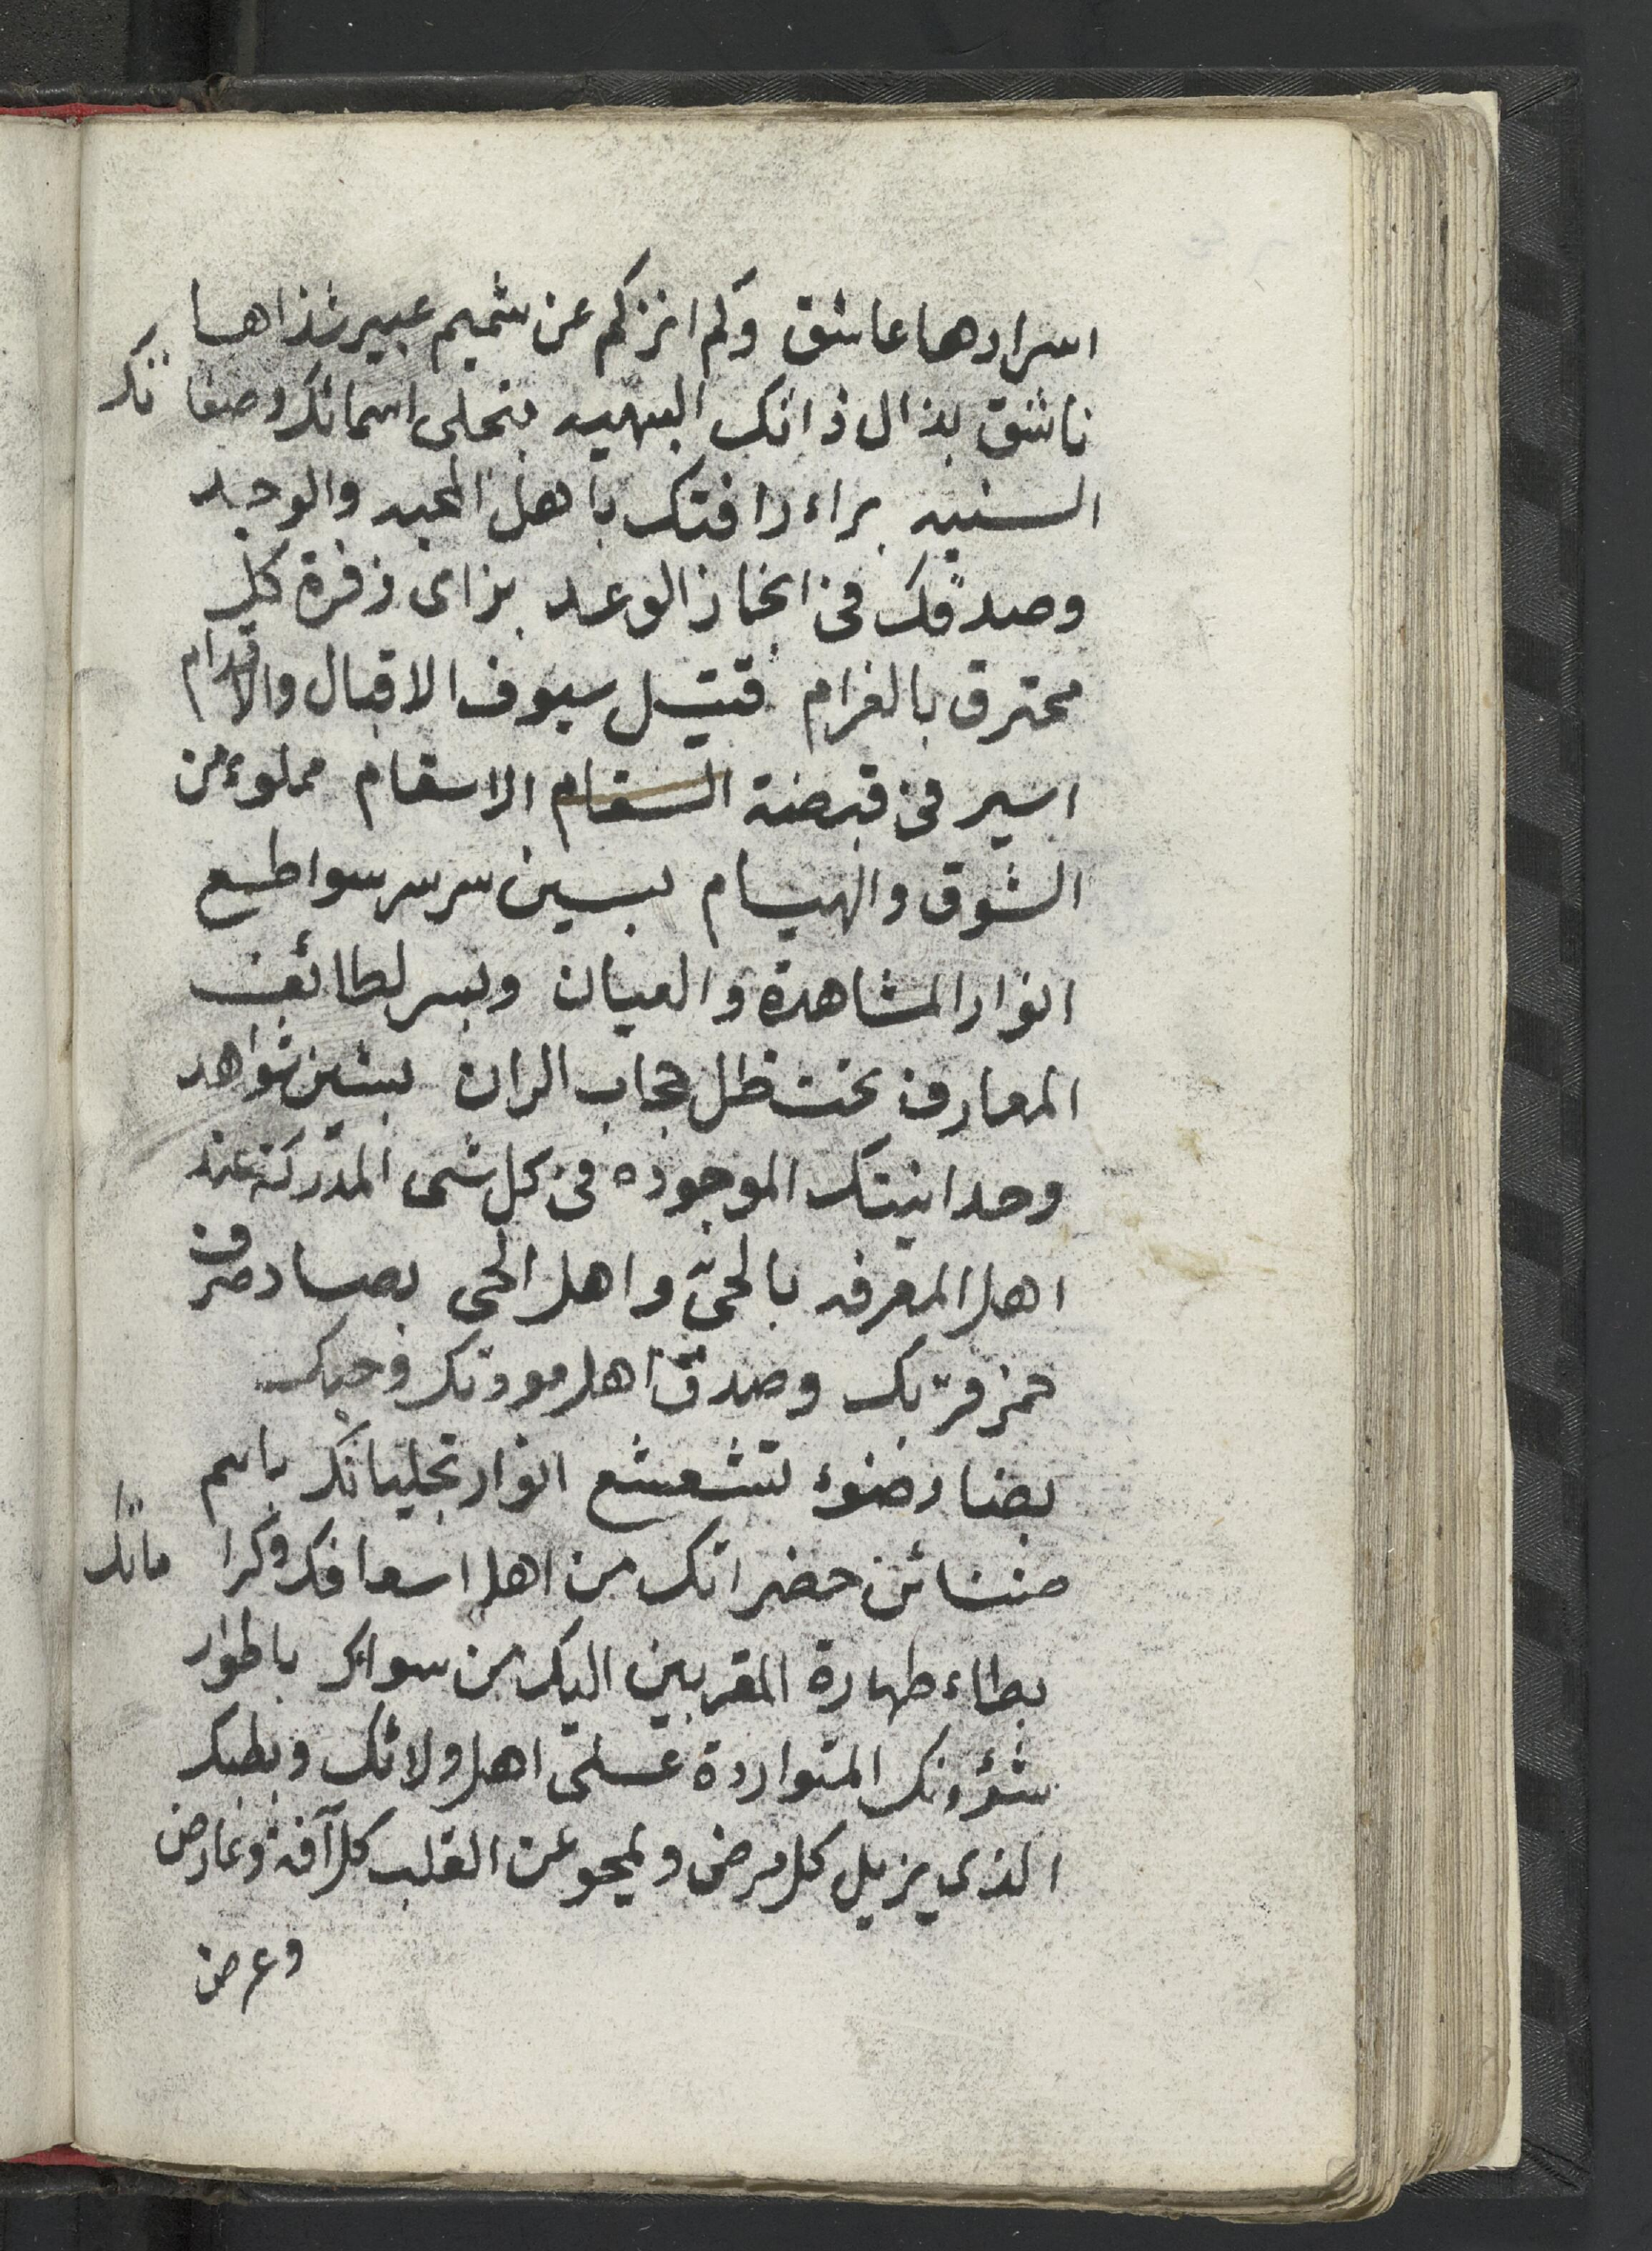 اسرارها عاشق ولم انزكم عن شميم عبير شذاها
ناشق بذال ذاتك البهيه بتجلى اسمائك وصفاتك
السنيه براء رافتك باهل المحبه والوجد
وصدقك فى انجاز الوعد بزاى زفرة كل
محترق بالغرام قتيل سيوف الاقبال والاقدام
اسير فى قبضة السقام الاسقام مملوء من
الشوق والهيام بسين سر سر سواطع
انوار المشاهدة والعيان وبسر لطائف
المعارف تحت ظل حجاب الران بشين شواهد
وحدانيتك الموجوده فى كل شى المدركة عند
اهل المعرفه بالحىّ واهل الحى بصاد صرف
خمر قربك وصدق اهل مودتك وحبك
بضاد ضوء تشعشع انوار تجلياتك باسم
ضنائن حضراتك من اهل اسعافك وكراماتك
بطاء طهارة المقربين اليك من سواك باطوار
شؤونك المتواردة على اهل ولائك وبطبك
الذى يزيل كل مرض ويمحو عن القلب كل آفة وعارض
وعرض